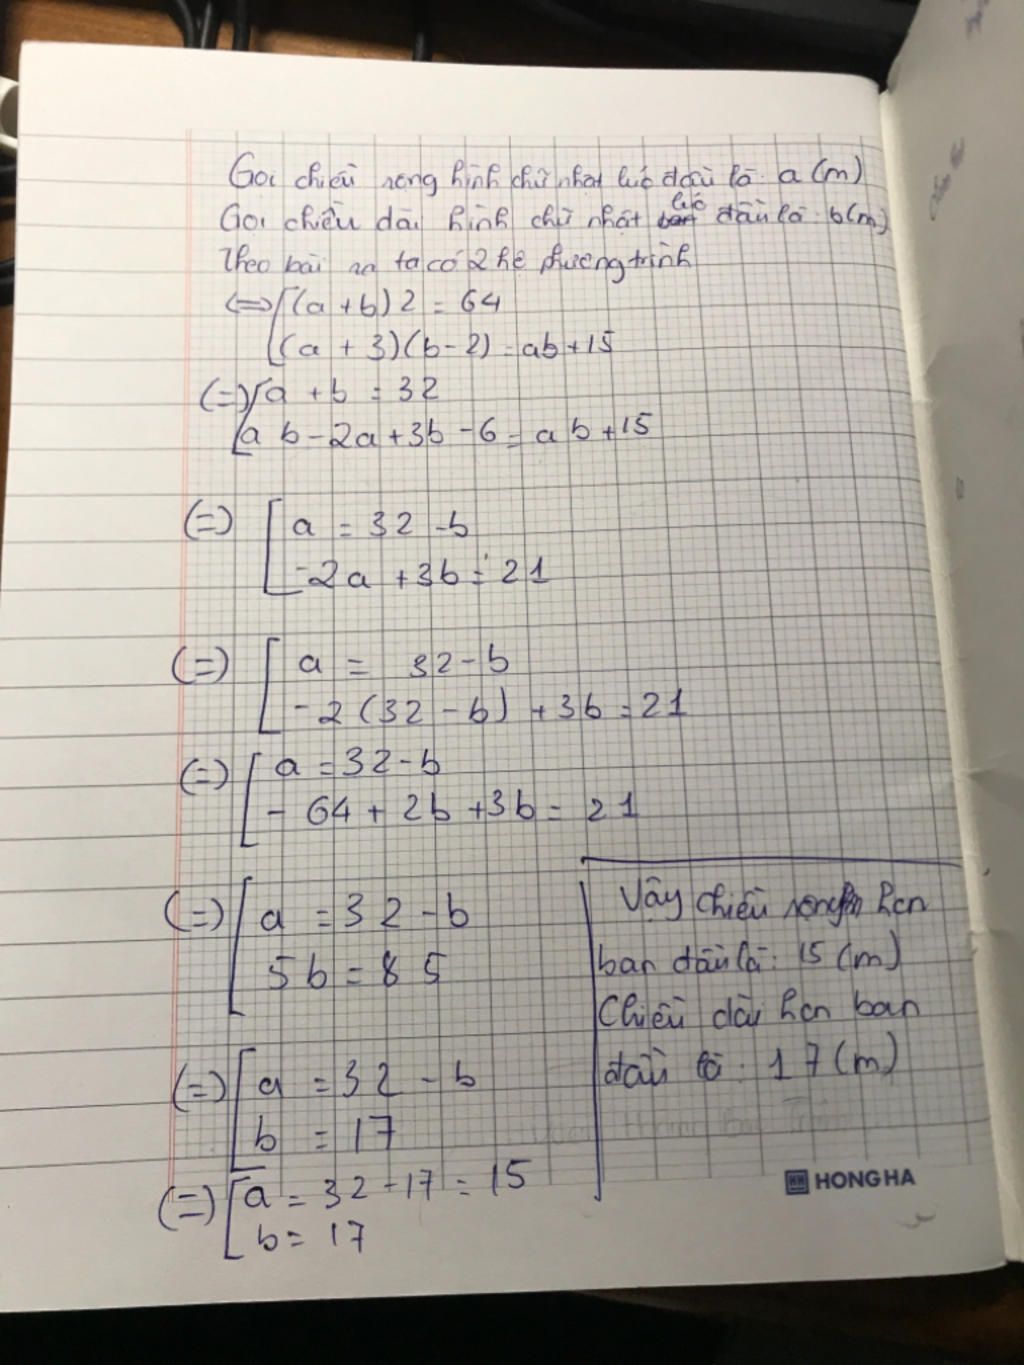 Gọi chiều rộng hình chữ nhật lúc đầu là: a (m)
Gọi chiều dài hình chữ nhật lúc đầu là: b(m)
Theo bài ra ta có 2 hệ phương trình
<=> [(a + b) 2 = 64
[(a + 3)(b - 2) = ab + 15
(=) [a + b = 32
[ab - 2a + 3b - 6 = ab + 15
(=) [a = 32 - b
[-2a + 3b = 21
(=) [a = 32 - b
[-2(32 - b) + 3b = 21
(=) [a = 32 - b
[- 64 + 2b + 3b = 21
(=) [a = 32 - b
[5b = 85
(=) [a = 32 - b
[b = 17
(=) [a = 32 - 17 = 15
[b = 17
Vậy chiều rộng hcn
ban đầu là: 15 (m)
Chiều dài hcn ban
đầu là: 17 (m)
HONG HA